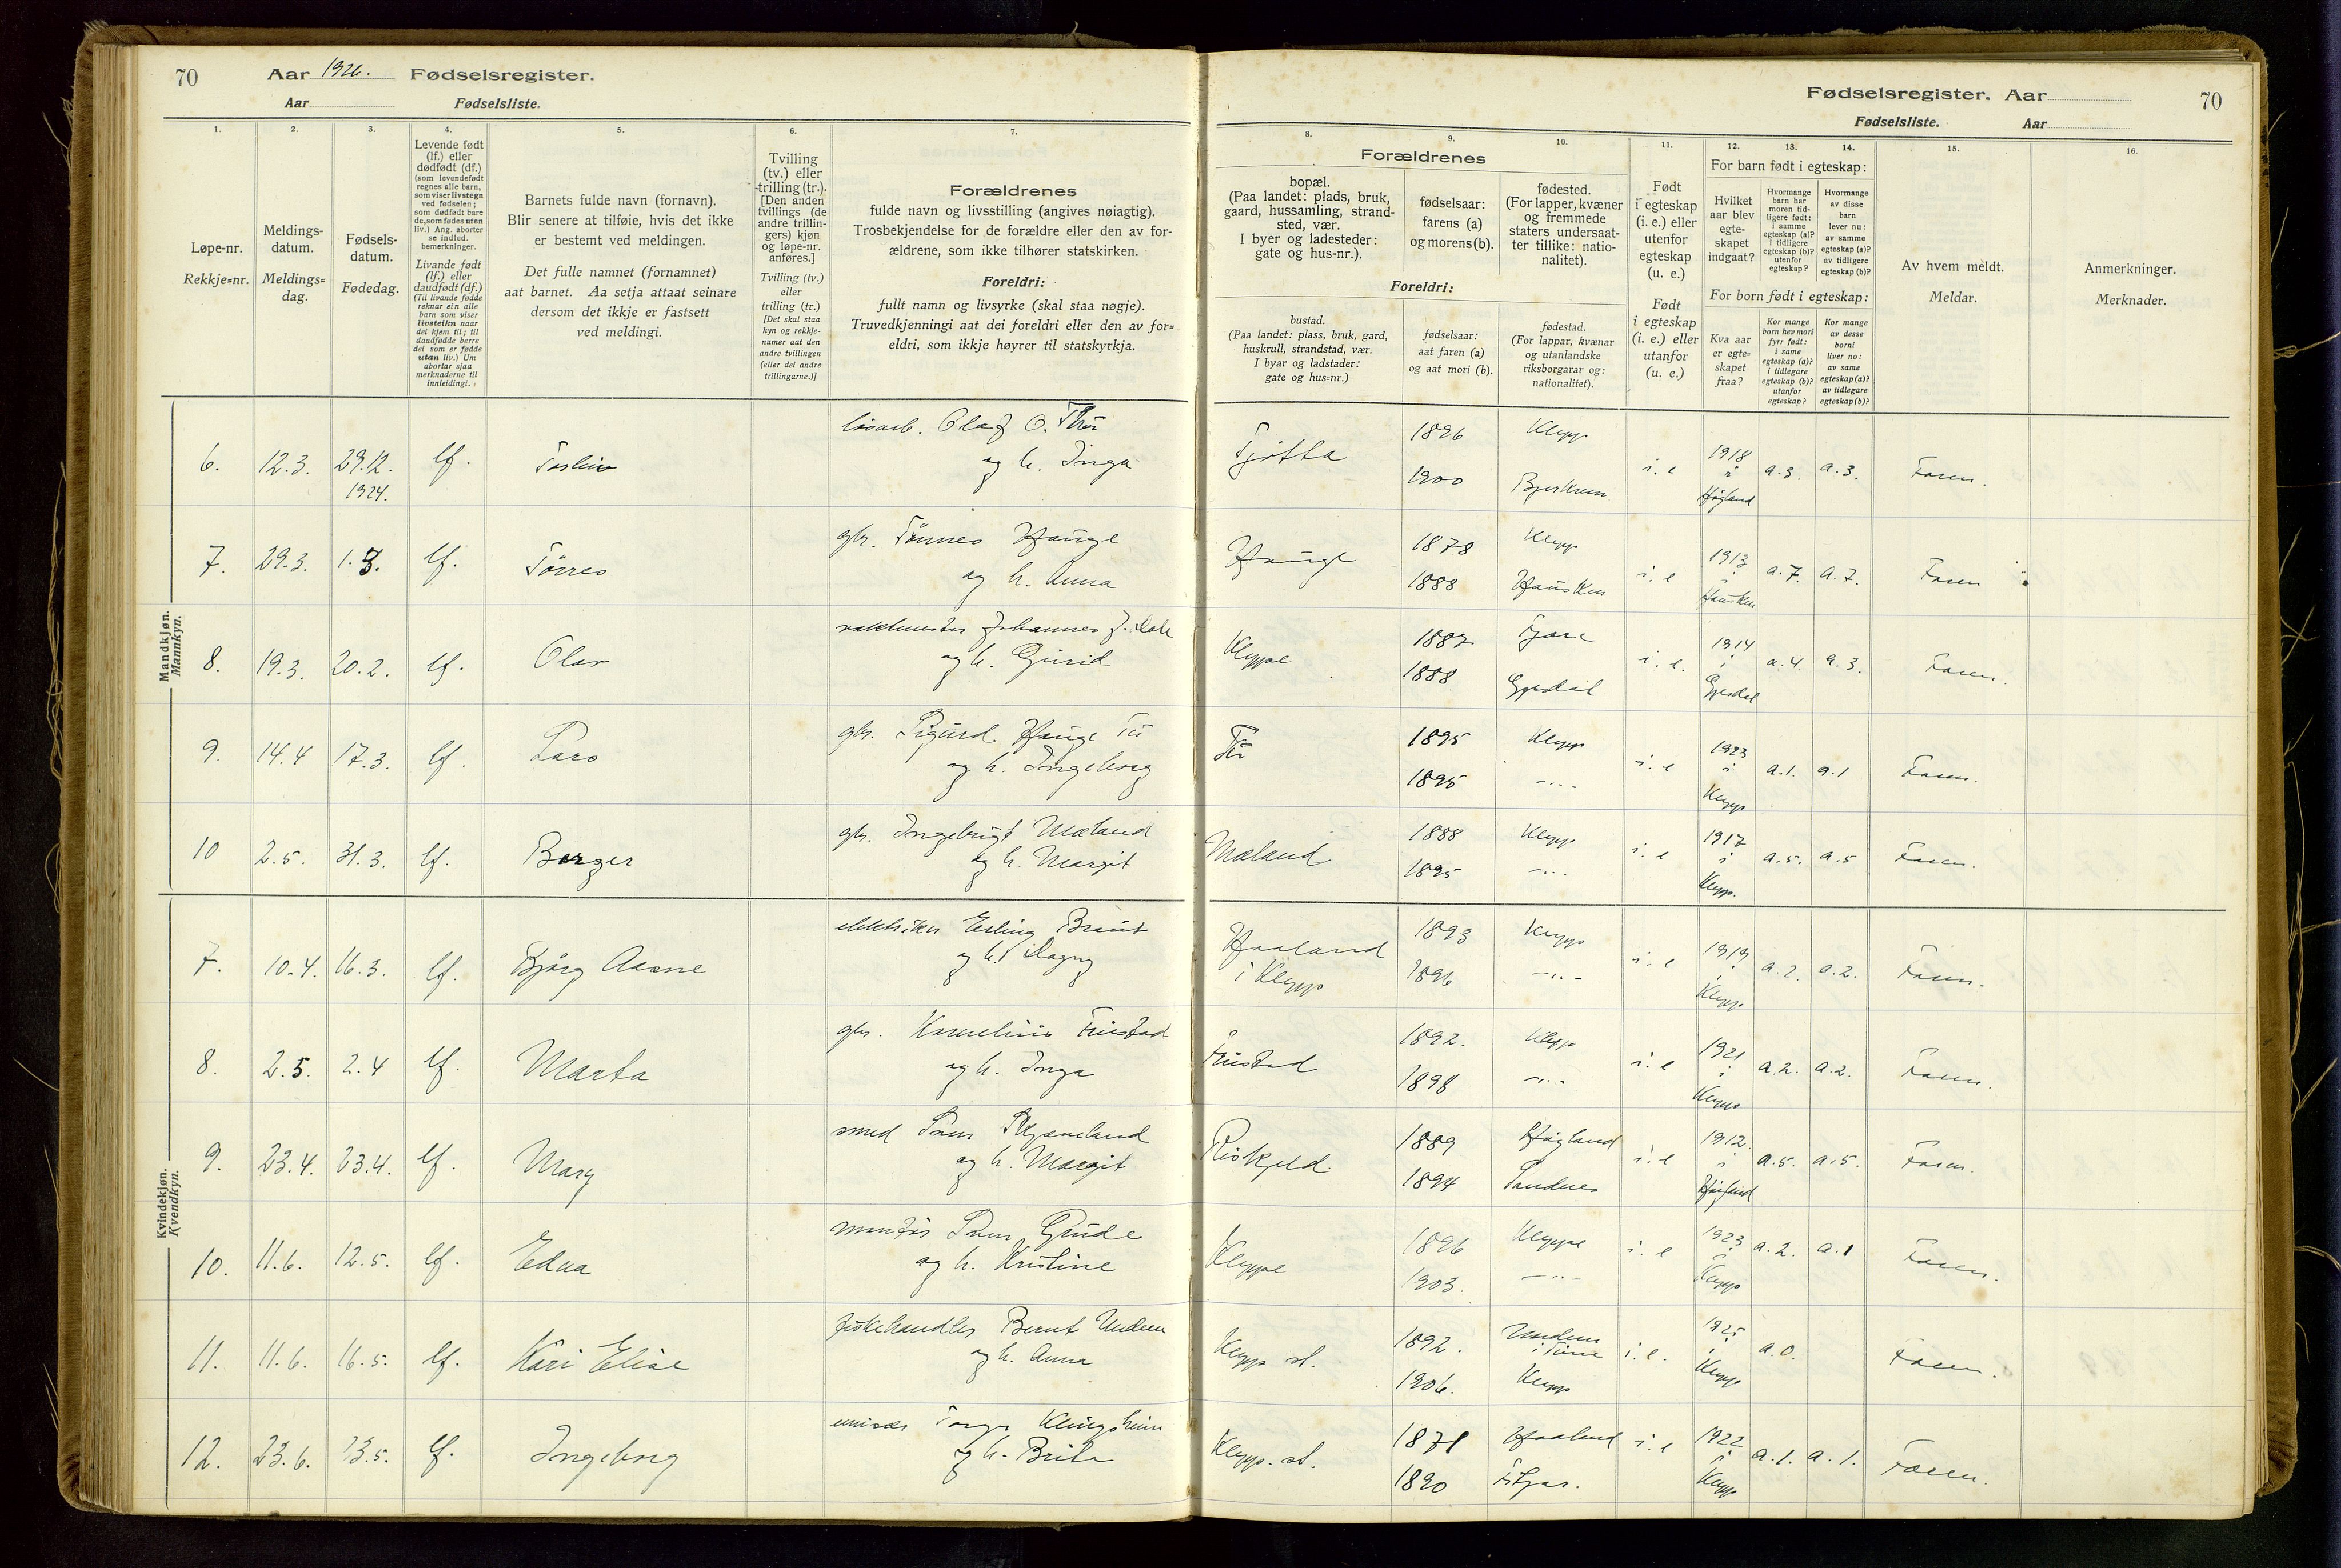 70 Aar 1926. Fødselsregister.
Aar Fødselsliste.
Fødselsregister. Aar 70
Fødselsliste. Aar
1. 2. 3. 4. 5. 6. 7.
Løpe-nr.
Rekkje=nr.
Meldings-
datum.
Meldings=
dag.
Fødsels-
datum.
Fødedag.
Levende født
(lf.) eller
dødfødt (df.)
(som levendefødt
regnes alle barn,
som viser livstegn
ved fødselen;
som dødfødt bare
de, som fødes uten
liv.) Ang. aborter
se indled.
bemerkninger.
Livande født
(lf.) eller
daudfødt (df.)
(Til livande fødde
reknar ein alle
barn som viser
livsteikn naar
dei kjem til; til
daudfødde berre
dei som er fødde
utan liv.) Um
abortar sjaa
merknaderne til
innleidingi.
Barnets fulde navn (fornavn).
Blir senere at tilføie, hvis det ikke
er bestemt ved meldingen.
Det fulle namnet (fornamnet)
aat barnet. Aa setja attaat seinare
dersom det ikkje er fastsett
ved meldingi.
Tvilling
(tv.) eller
trilling (tr.).
[Den anden
tvillings (de
andre trillin-
gers) kjøn
og løpe-nr.
anføres.]
Tvilling (tv.)
eller
trilling (tr.)
[Det skal staa
kyn og rekkje-
numer aat den
andre tvillingen
(eller dei andre
trillingarne.)]
Forældrenes
fulde navn og livsstilling (angives nøiagtig).
Trosbekjendelse for de forældre eller den av for-
ældrene, som ikke tilhører statskirken.
Foreldri:
fullt namn og livsyrke (skal staa nøgje).
Truvedkjenningi aat dei foreldri eller den av for=
eldri, som ikkje høyrer til statskyrkja.
8. 9. 10. 11. 12. 13. 14. 15. 16.
Forældrenes
bopæl.
(Paa landet: plads, bruk,
gaard, hussamling, strand-
sted, vær.
I byer og ladesteder:
gate og hus-nr.).
fødselsaar:
farens (a)
og morens (b).
fødested.
(For lapper, kvæner
og fremmede
staters undersaat-
ter tillike: natio-
nalitet).
Foreldri:
bustad.
(Paa landet: plass, bruk, gard,
huskrull, strandstad, vær.
I byar og ladstader:
gate og hus=nr.)
fødselsaar:
aat faren (a)
og aat mori (b).
fødestad.
(For lappar, kvænar
og utanlandske
riksborgarar og:
nationalitet).
Født
i egteskap
(i. e.) eller
utenfor
egteskap
(u. e.)
Født
i egteskap
(i. e.) eller
utanfor
(u. e.)
For barn født i egteskap:
Hvilket
aar blev
egte-
skapet
indgaat?
Hvormange
barn har
moren tid-
ligere født:
i samme
egteskap (a)?
i tidligere
egteskap (b)?
utenfor
egteskap?
Hvormange
av disse
barn
lever nu:
av samme
egteskap (a)?
av tidligere
egteskap (b)?
For born født i egteskap:
Kva aar
er egte-
skapet
fraa?
Kor mange
born hev mori
fyrr født:
i same
egteskap (a)?
i tidlegare
egteskap (b)?
utanfor
egteskap?
Kor mange
av desse
borni
liver no:
av same
egteskap (a)?
av tidlegare
egteskap (b)?
Av hvem meldt.
Meldar.
Anmerkninger.
Merknader.
Mandkjøn.
Mannkyn.
6. 12.3. 29.12. 1924. lf. Olaf O. og h. Inga Tjøtta 1896 Klepp 1900 Bjerkreim i. e 1918 i Høyland a. 3. a. 3. Faren.
7. 29.3. 1.3. lf. Tørres gbr. Tønnes Hauge og h. Anna Hauge 1878 Klepp 1888 Hausken i. e 1913 i Hausken a. 7. a. 7. Faren
8. 19.3. 20.2. lf. Olav Johannes J. og h. Gurid Kleppe 1887 1888 Gjesdal i. e. 1914 i Gjesdal a. 4. a. 3. Faren.
9. 14.4 17.3. lf. Lars gbr. Sigurd Hauge Tu og h. Ingeborg Tu 1895 Klepp 1895 -"- i. e 1923 i Klepp a. 1. a. 1 Faren.
10 2.5. 31.3. lf. Berger gbr. Ingebrigt Mæland og h. Margit Mæland 1888 Klepp 1895 -"- i. e 1917 i Klepp. a. 5. a. 5 Faren.
Kvindekjøn.
Kvendkyn.
7. 10.4. 16.3. lf. Bjørg Aanne elektriker Erling Braut og h. Dagny Haaland i Klepp 1893 Klepp 1896 -"- i. e 1919 i Klepp a. 2. a. 2. Faren.
8. 2.5. 2.4 lf. Marta gbr. Kornelius Friestad og h. Inga Friestad 1892. Klepp 1898 -"- i. e 1921 i Klepp a. 2. a. 2. Faren.
9. 23.4. 23.4. lf. Mary smed Sven Skjæveland og h. Margit Riskjeld 1889 Høyland 1894 Sandnes i. e 1912. i Høyland a. 5. a. 5. Faren.
10. 11.6. 12.5. lf. Edna montør Sven Grude og h. Kristine Kleppe 1896 Kleppe 1903. -"- i. e 1923 i Klepp a. 2. a. 1 Faren.
11. 11.6. 16.5. lf. Kari Elise fiskehandler Bernt Undem og h. Anna Klepp st. 1892. Undem i Time 1906. Klepp i. e. 1925 i Klepp a. 0. Faren.
12. 23.6. 23.5. lf. Ingeborg Klungsheim og h. Brita Klepp. st. 1871 Haaland 1890 Fitjar. i. e 1922 i Klepp a. 1. a. 1. Faren.